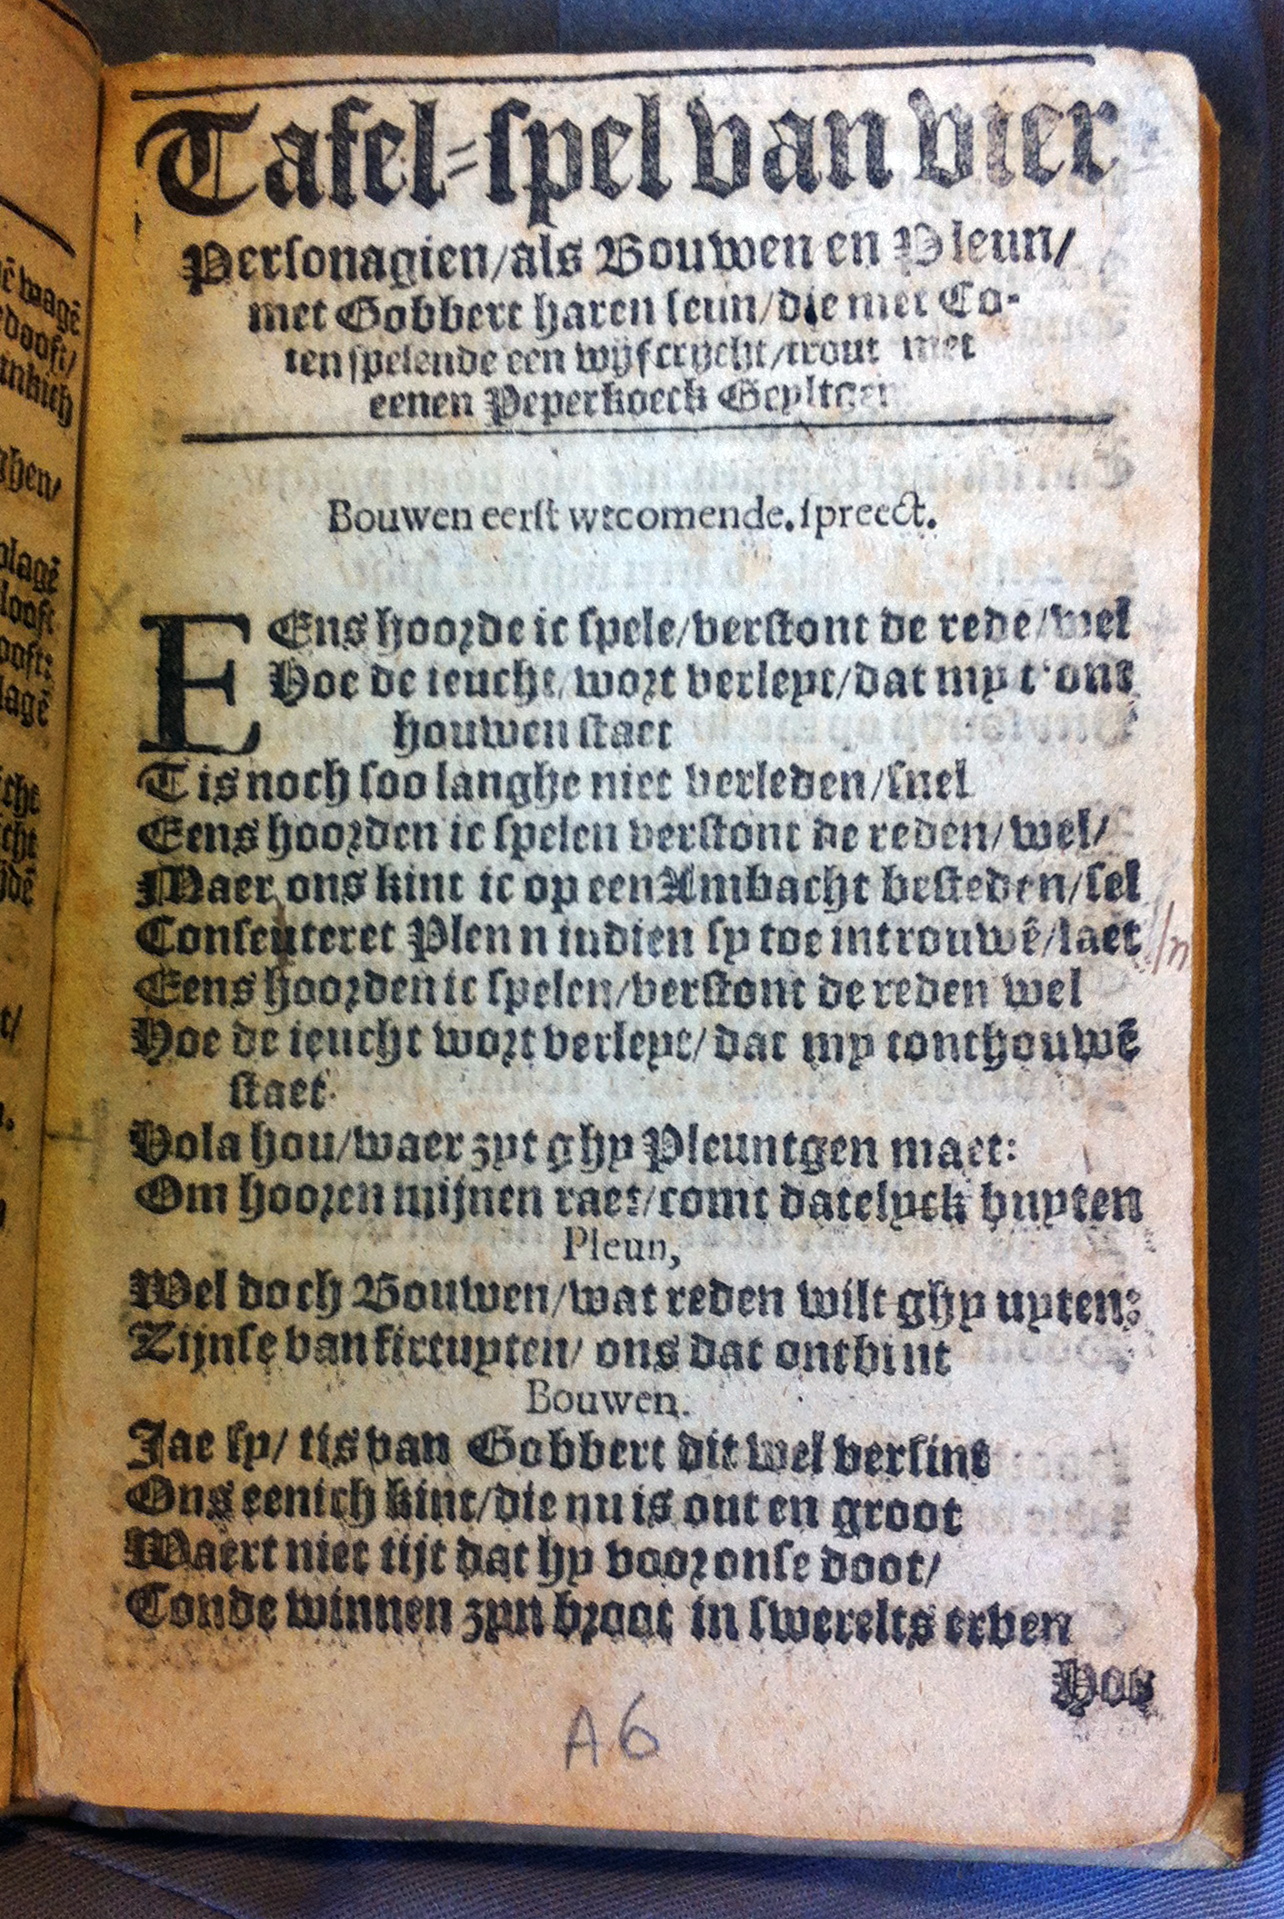 Tafel-spel van vier
Personagien/als Bouwen en Pleun/
met Gobbert haren seun/die met Co-
ten spelende een wijf crycht/trout met
eenen Peperkoeck Geyltgen
Bouwen eerst wtcomende. spreect.
EEns hoorde ic spele/verstont de rede/wel
Hoe de ieucht/wort verleyt/dat my t'ont
houwen staet
Tis noch soo langhe niet verleden/snel
Eens hoorden ic spelen verstont de reden/wel/
Maer ons kint ic op een Ambacht besteden/sel
Consenteret Plenn indien sy toe introuwē/laet
/n
Eens hoorden ic spelen/verstont de reden wel
Hoe de ieucht wort verleyt/dat my tonthouwē
staet
Hola hou/waer zyt ghy Pleuntgen maet:
Om hooren mijnen raet/comt datelyck buyten
Pleun,
Wel doch Bouwen/wat reden wilt ghy uyten:
Zijnse van firtuyten/ ons dat ontbint
Bouwen.
Jae sy/ tis van Gobbert dit wel versint
Ons eenich kint/die nu is out en groot
Waert niet tijt dat hy voor onse doot/
Conde winnen zyn broot in swerelts erven
Hoe
A6
wagē
edooft/
ghen/
plagē
looft
ooft:
lagē